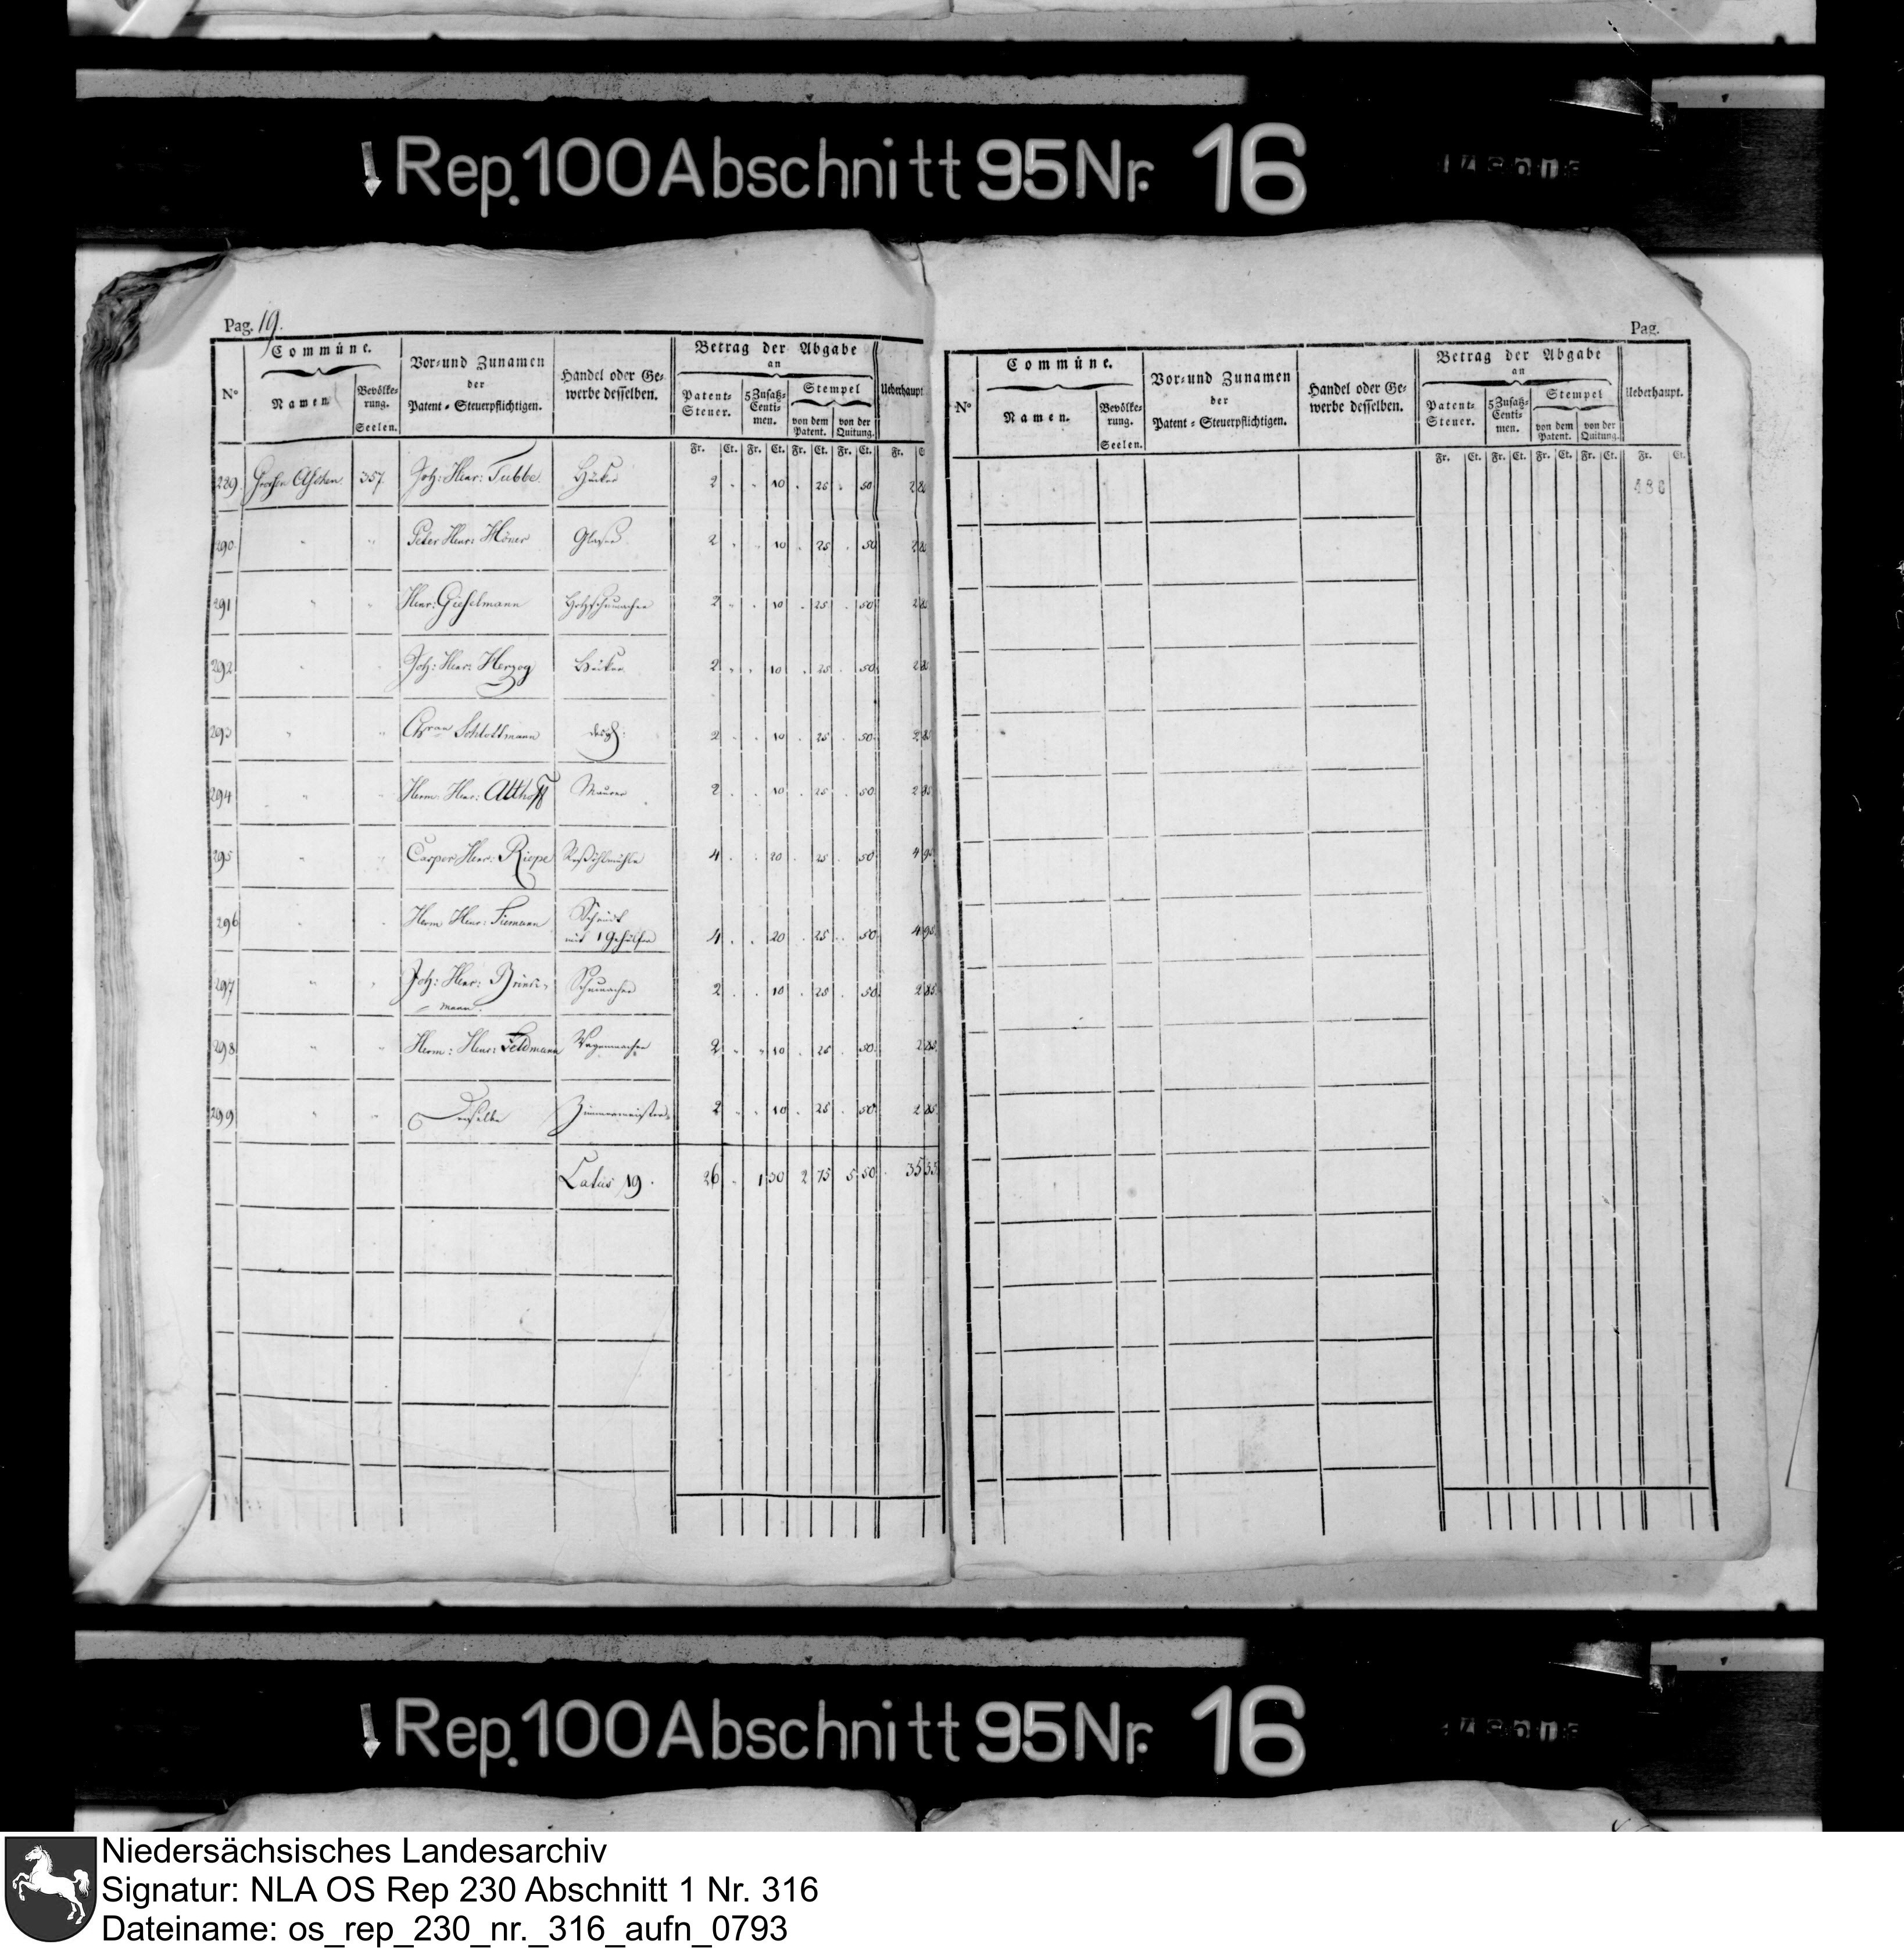 Rep. 100 Abschnitt 95 Nr. 16
Pag. 19.
N° Commüne. Vor- und Zunamen der Patent-Steuerpflichtigen. Handel oder Gewerbe desselben. Betrag der Abgabe an Ueberhaupt
Namen Bevölkerung. Seelen. Patent-Steuer. 5 Zusatz-Centimen. Stempel von dem Patent. von der Quitung.
Fr. Ct. Fr. Ct. Fr. Ct. Fr. Ct. Fr.
289. 357. Joh: Henr: Tubbe Höcker 2 . . 10 . 25 . 50 2 85
290 " " Peter Henr: Höner Glaser 2 . . 10 . 25 . 50 2 85
291 " " Henr: Gieselmann Holzschumacher 2 . . 10 . 25 . 50 2 85
292 " " Joh: Henr: Herzog Höcker 2 . . 10 . 25 . 50 2 85
293 " " Schlottmann 2 . . 10 . 25 . 50 2 85
294 " " Herm: Henr: Althoff Maurer 2 . . 10 . 25 . 50 2 85
295 " " Caspar Henr: Riepe Roßöhlmühle 4 . . 20 . 25 . 50 4 95
296 " " Herm Henr: Tiemann Schmidt
mit 1 Gehülfen 4 . . 20 . 25 . 50 4 95
297 " " Joh: Henr: Brink-
= mann. Schumacher 2 . . 10 . 25 . 50 2 85
298 " " Herm: Henr: Feldmann Wagenmacher 2 . . 10 . 25 . 50 2 85
299 " " Derselbe Zimmermeister 2 . . 10 . 25 . 50 2 85
Latus 19. 26 . 1 30 2 75 5 50 35 55
Pag.
N° Commüne. Vor- und Zunamen der Patent-Steuerpflichtigen. Handel oder Gewerbe desselben. Betrag der Abgabe an Ueberhaupt.
Namen. Bevölkerung. Seelen. Patent-Steuer. 5 Zusatz-Centimen. Stempel von dem Patent. von der Quitung.
Fr. Ct. Fr. Ct. Fr. Ct. Fr. Ct. Fr. Ct.
Rep. 100 Abschnitt 95 Nr. 16
Niedersächsisches Landesarchiv
Signatur: NLA OS Rep 230 Abschnitt 1 Nr. 316
Dateiname: os_rep_230_nr._316_aufn_0793